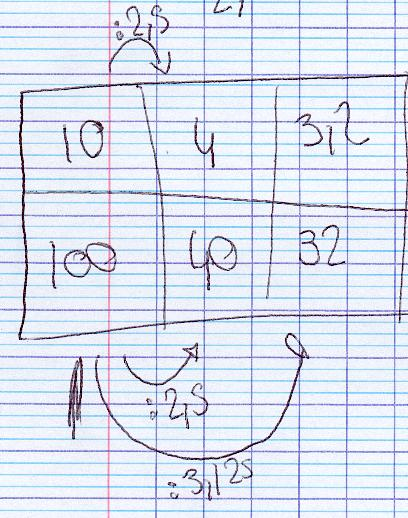 :2,5
10 4 3,2
100 40 32
:2,5
:3,125